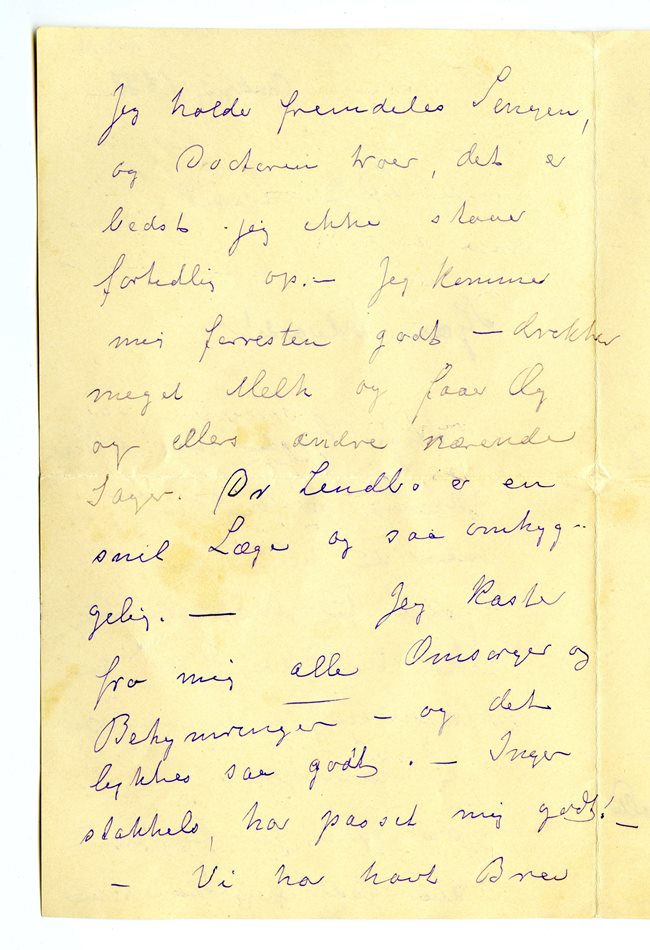 Jeg holde fremdeles Sengen,
og Doctoren troer, det er
bedst jeg ikke staar
fortidlig op. — Jeg kommer
mig forresten godt — drikker
meget Melk og faar Æg
og ellers andre nærende
Sager. Dr er en
snil Læge og saa omhyg-
gelig. — Jeg kaster
fra mig alle Omsorger og
Bekymringer — og det
lykkes saa godt. — Inger
stakkels, har passet mig godt! —
— Vi har havt Brev